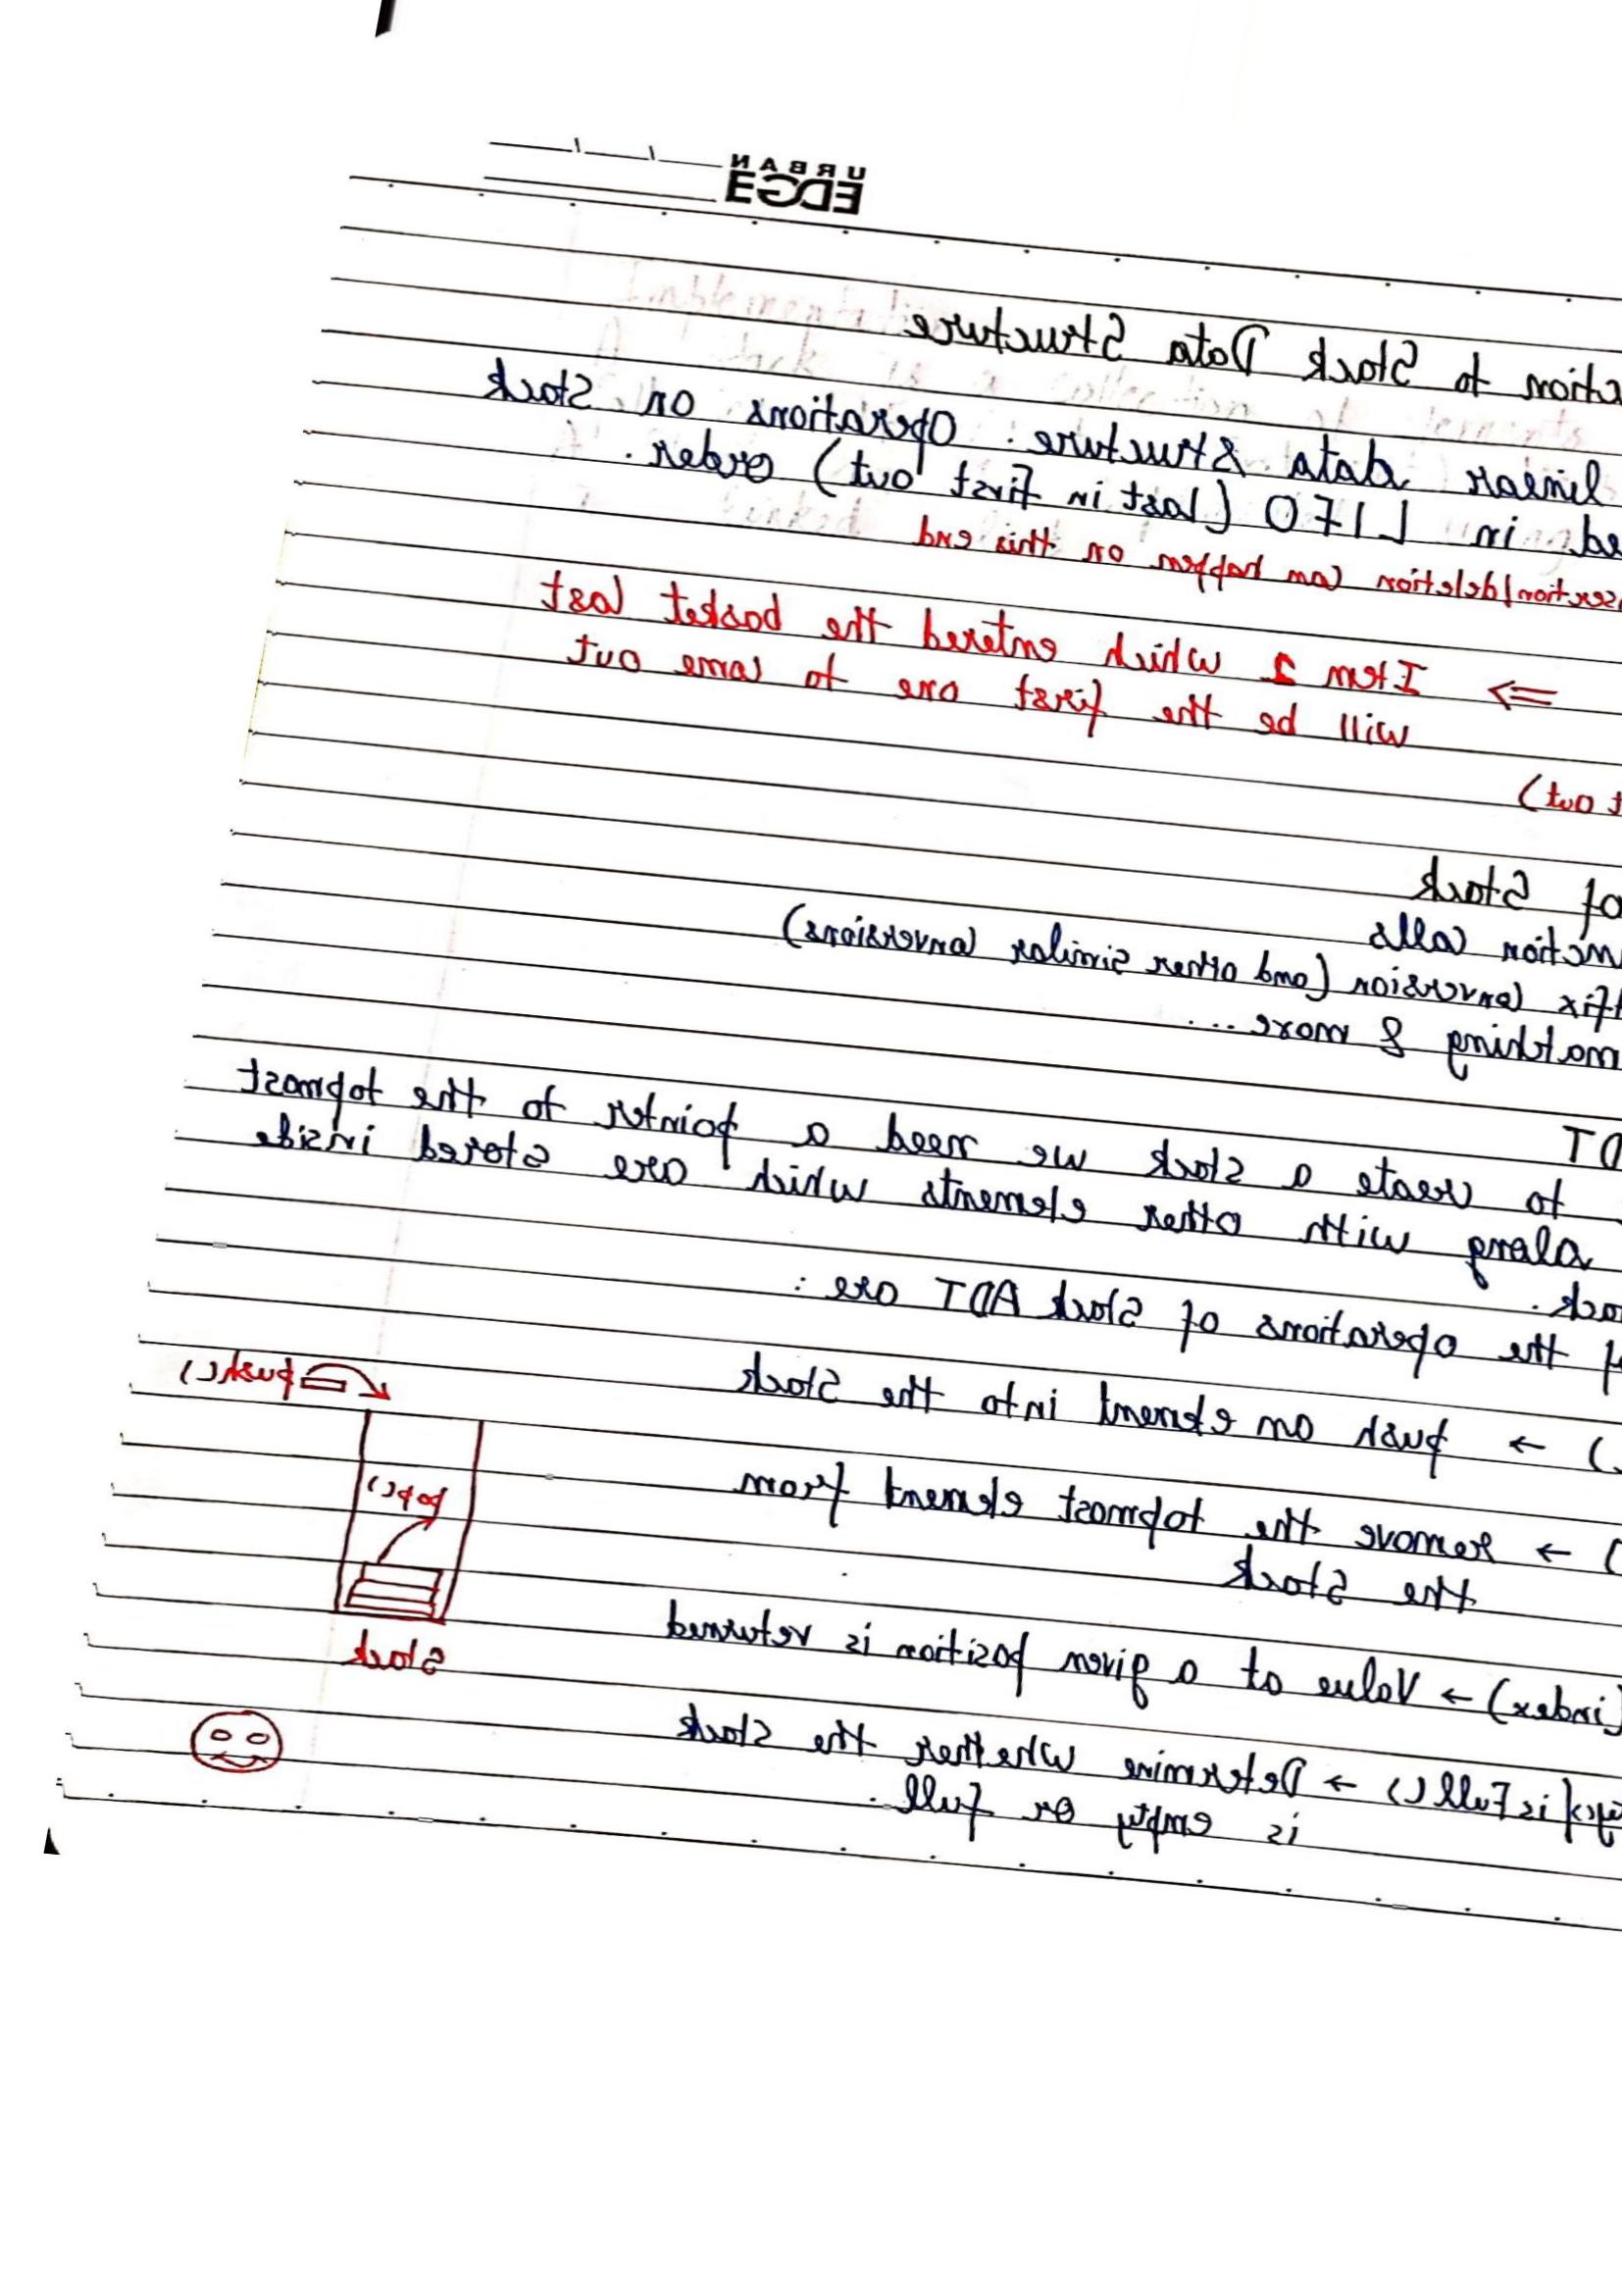 URBAN
EDGE
ction to Stack Data Structure
linear data structure. Operations on Stack
ed in LIFO (last in first out) order.
sertion/deletion can happen on this end
=> Item 2 which entered the basket last
will be the first one to come out
t out)
of Stack
nction calls
fix conversion (and other similar conversions)
matching & more...
DT
to create a stack we need a pointer to the topmost
along with other elements which are stored inside
ack.
f the operations of Stack ADT are :
) → push an element into the Stack
push()
) → Remove the topmost element from
the Stack
pop()
Stack
(index) → Value at a given position is returned
ty()/isFull() → Determine whether the stack
is empty or full.